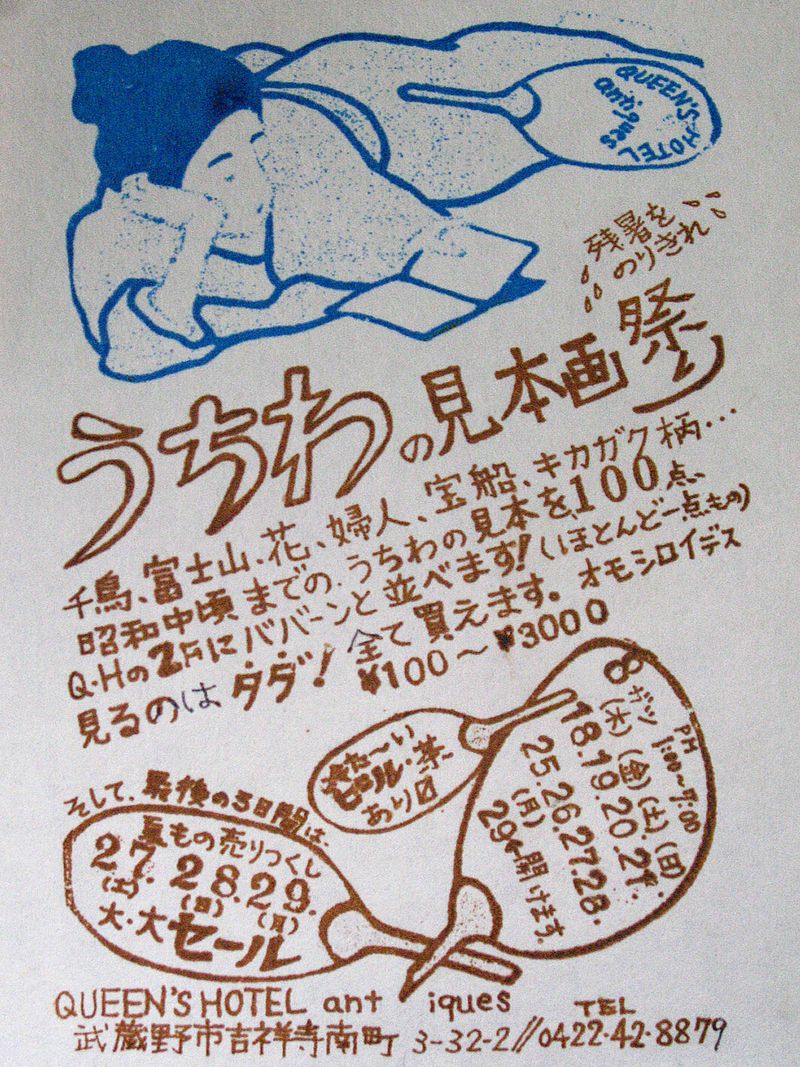 QUEEN'S HOTEL
antiques
残暑を
のりきれ
うちわの見本画祭り
千鳥、富士山、花、婦人、宝船、キカガク柄…
昭和中頃までの、うちわの見本を100点、
Q.Hの2Fにババーンと並べます!(ほとんど一点もの)
見るのはタダ!全て買えます。オモシロイデス
¥100〜¥3000
8ガツ PM 1:00〜7:00
(木)(金)(土)(日)
18.19.20.21.
25.26.27.28.
(月)
29も開けます。
冷た〜い
ビール・茶
あり〼
そして、最後の3日間は、
夏もの売りつくし
27 28.29.
(土)(日)(月)
大・大セール
QUEEN'S HOTEL ant iques TEL
武蔵野市吉祥寺南町 3-32-2//0422・42・8879